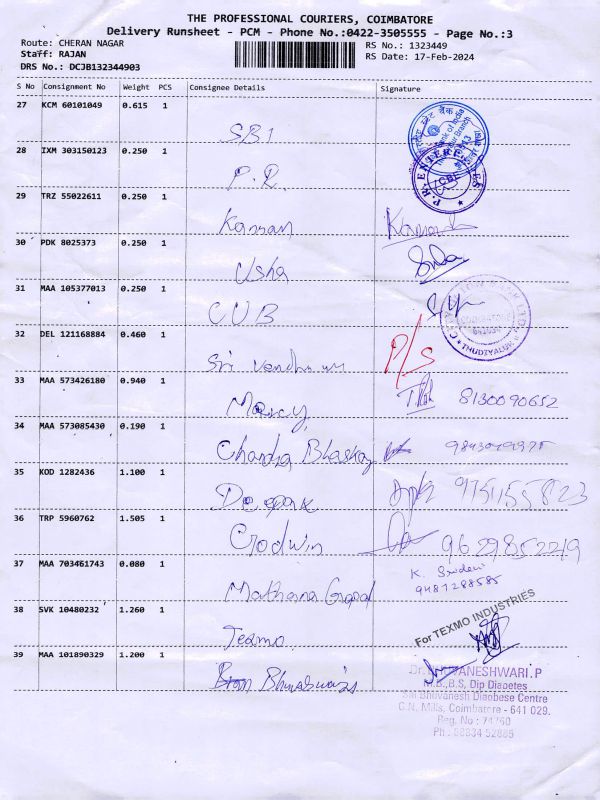 THE PROFESSIONAL COURIERS, COIMBATORE
Delivery Runsheet - PCM - Phone No.:0422-3505555 - Page No.:3
Route: CHERAN NAGAR
RS No.: 1323449
Staff: RAJAN
RS Date: 17-Feb-2024
DRS No.: DCJB132344903
S No Consignment No Weight PCS Consignee Details Signature
27 KCM 60101049 0.615 1
SBI
28 IXM 303150123 0.250 1
P.R. ENTERPRISES
P.R.
29 TRZ 55022611 0.250 1
Kannan
30 PDK 8025373 0.250 1
Usha
31 MAA 105377013 0.250 1
CUB
THUDIYALUR
32 DEL 121168884 0.460 1
P/S
Sri
33 MAA 573426180 0.940 1
Mercy 8130090652
34 MAA 573085430 0.190 1
Chandra Bhaskar
35 KOD 1282436 1.100 1
Deepak 9751155823
36 TRP 5960762 1.505 1
Godwin 9629852219
37 MAA 703461743 0.080 1
K. Sridevi
9487288585
Mathana Gopal
38 SVK 10480232 1.260 1
For TEXMO INDUSTRIES
Texmo
39 MAA 101890329 1.200 1
Dr. BHUVANESHWARI.P
M.B.,B.S, Dip Diabetes
SM Bhuvanesh Diabese Centre
G.N. Mills, Coimbatore - 641 029.
Reg. No : 74760
Ph : 88834 52885